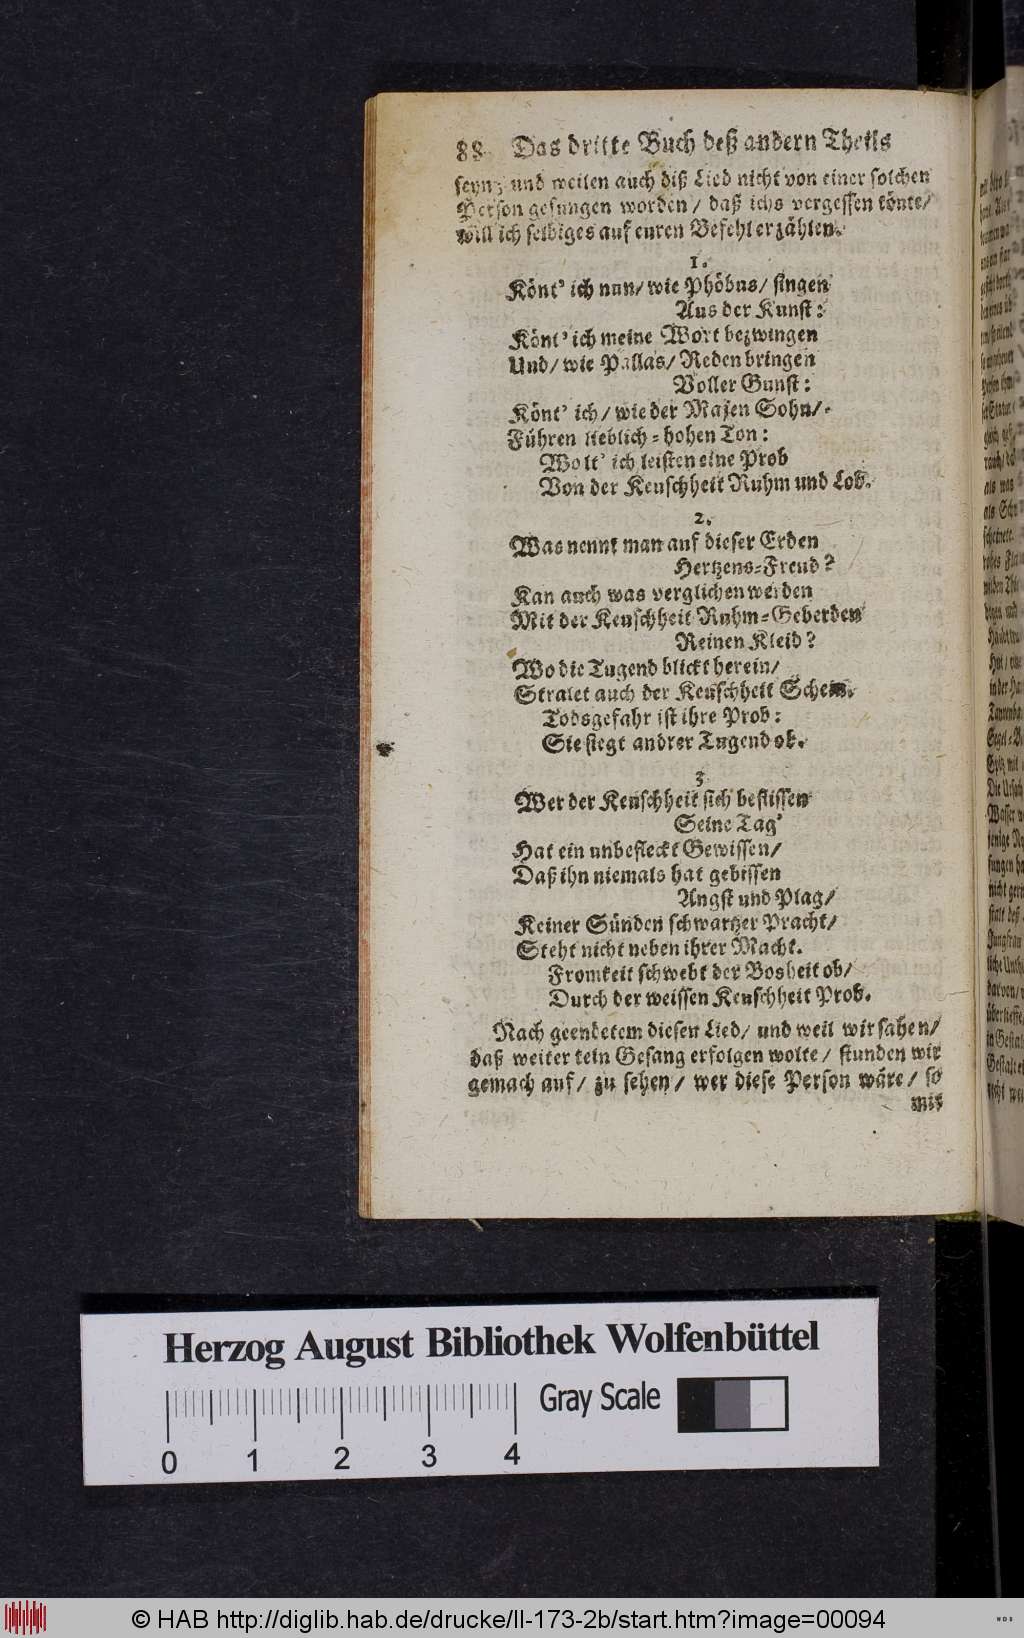 88 Das dritte Buch deß andern Theils
seyn; und weilen auch diß Lied nicht von einer solchen
Person gesungen worden / daß ichs vergessen könte /
will ich selbiges auf euren Befehl erzählen.
1.
Könt' ich nun / wie Phöbus / singen
Aus der Kunst:
Könt' ich meine Wort bezwingen
Und / wie Pallas / Reden bringen
Voller Gunst:
Könt' ich / wie der Majen Sohn /
Führen lieblich-hohen Ton:
Wolt' ich leisten eine Prob
Von der Keuschheit Ruhm und Lob.
2.
Was nennt man auf dieser Erden
Hertzens-Freud?
Kan auch was verglichen werden
Mit der Keuschheit Ruhm-Geberden
Reinen Kleid?
Wo die Tugend blickt herein /
Stralet auch der Keuschheit Schein.
Todsgefahr ist ihre Prob:
Sie siegt andrer Tugend ob.
3
Wer der Keuschheit sich beflissen
Seine Tag'
Hat ein unbefleckt Gewissen /
Daß ihn niemals hat gebissen
Angst und Plag /
Keiner Sünden schwartzer Pracht /
Steht nicht neben ihrer Macht.
Fromkeit schwebt der Bosheit ob /
Durch der weissen Keuschheit Prob.
Nach geendetem diesen Lied / und weil wir sahen /
daß weiter kein Gesang erfolgen wolte / stunden wir
gemach auf / zu sehen / wer diese Person wäre / so
mit
Herzog August Bibliothek Wolfenbüttel
Gray Scale
0 1 2 3 4
© HAB http://diglib.hab.de/drucke/ll-173-2b/start.htm?image=00094
WDB